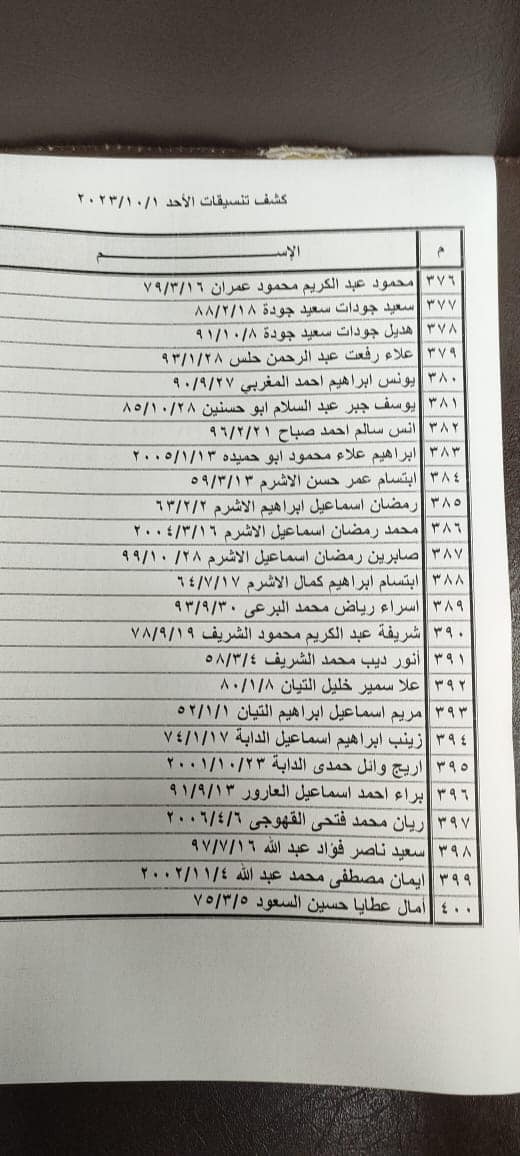 كشف تنسيقات الأحد ٢٠٢٣/١٠/١
م الإســـــــــــــم
٣٧٦ محمود عبد الكريم محمود عمران ٧٩/٣/١٦
٣٧٧ سعيد جودات سعيد جودة ٨٨/٢/١٨
٣٧٨ هديل جودات سعيد جودة ٩١/١٠/٨
٣٧٩ علاء رفعت عبد الرحمن حلس ٩٣/١/٢٨
٣٨٠ يونس ابراهيم احمد المغربي ٩٠/٩/٢٧
٣٨١ يوسف جبر عبد السلام ابو حسنين ٨٥/١٠/٢٨
٣٨٢ انس سالم احمد صباح ٩٦/٢/٢١
٣٨٣ ابراهيم علاء محمود ابو حميده ٢٠٠٥/١/١٣
٣٨٤ ابتسام عمر حسن الاشرم ٥٩/٣/١٣
٣٨٥ رمضان اسماعيل ابراهيم الاشرم ٦٣/٢/٢
٣٨٦ محمد رمضان اسماعيل الاشرم ٢٠٠٤/٣/١٦
٣٨٧ صابرين رمضان اسماعيل الاشرم ٩٩/١٠/٢٨
٣٨٨ ابتسام ابراهيم كمال الاشرم ٦٤/٧/١٧
٣٨٩ اسراء رياض محمد البرعى ٩٣/٩/٣٠
٣٩٠ شريفة عبد الكريم محمود الشريف ٧٨/٩/١٩
٣٩١ أنور ديب محمد الشريف ٥٨/٣/٤
٣٩٢ علا سمير خليل التيان ٨٠/١/٨
٣٩٣ مريم اسماعيل ابراهيم التيان ٥٢/١/١
٣٩٤ زينب ابراهيم اسماعيل الداية ٧٤/١/١٧
٣٩٥ اريج وائل حمدى الداية ٢٠٠١/١٠/٢٣
٣٩٦ براء احمد اسماعيل العارور ٩١/٩/١٣
٣٩٧ ريان محمد فتحى القهوجى ٢٠٠٦/٤/٦
٣٩٨ سعيد ناصر فؤاد عبد الله ٩٧/٧/١٦
٣٩٩ ايمان مصطفى محمد عبد الله ٢٠٠٢/١١/٤
٤٠٠ أمال عطايا حسين السعود ٧٥/٣/٥